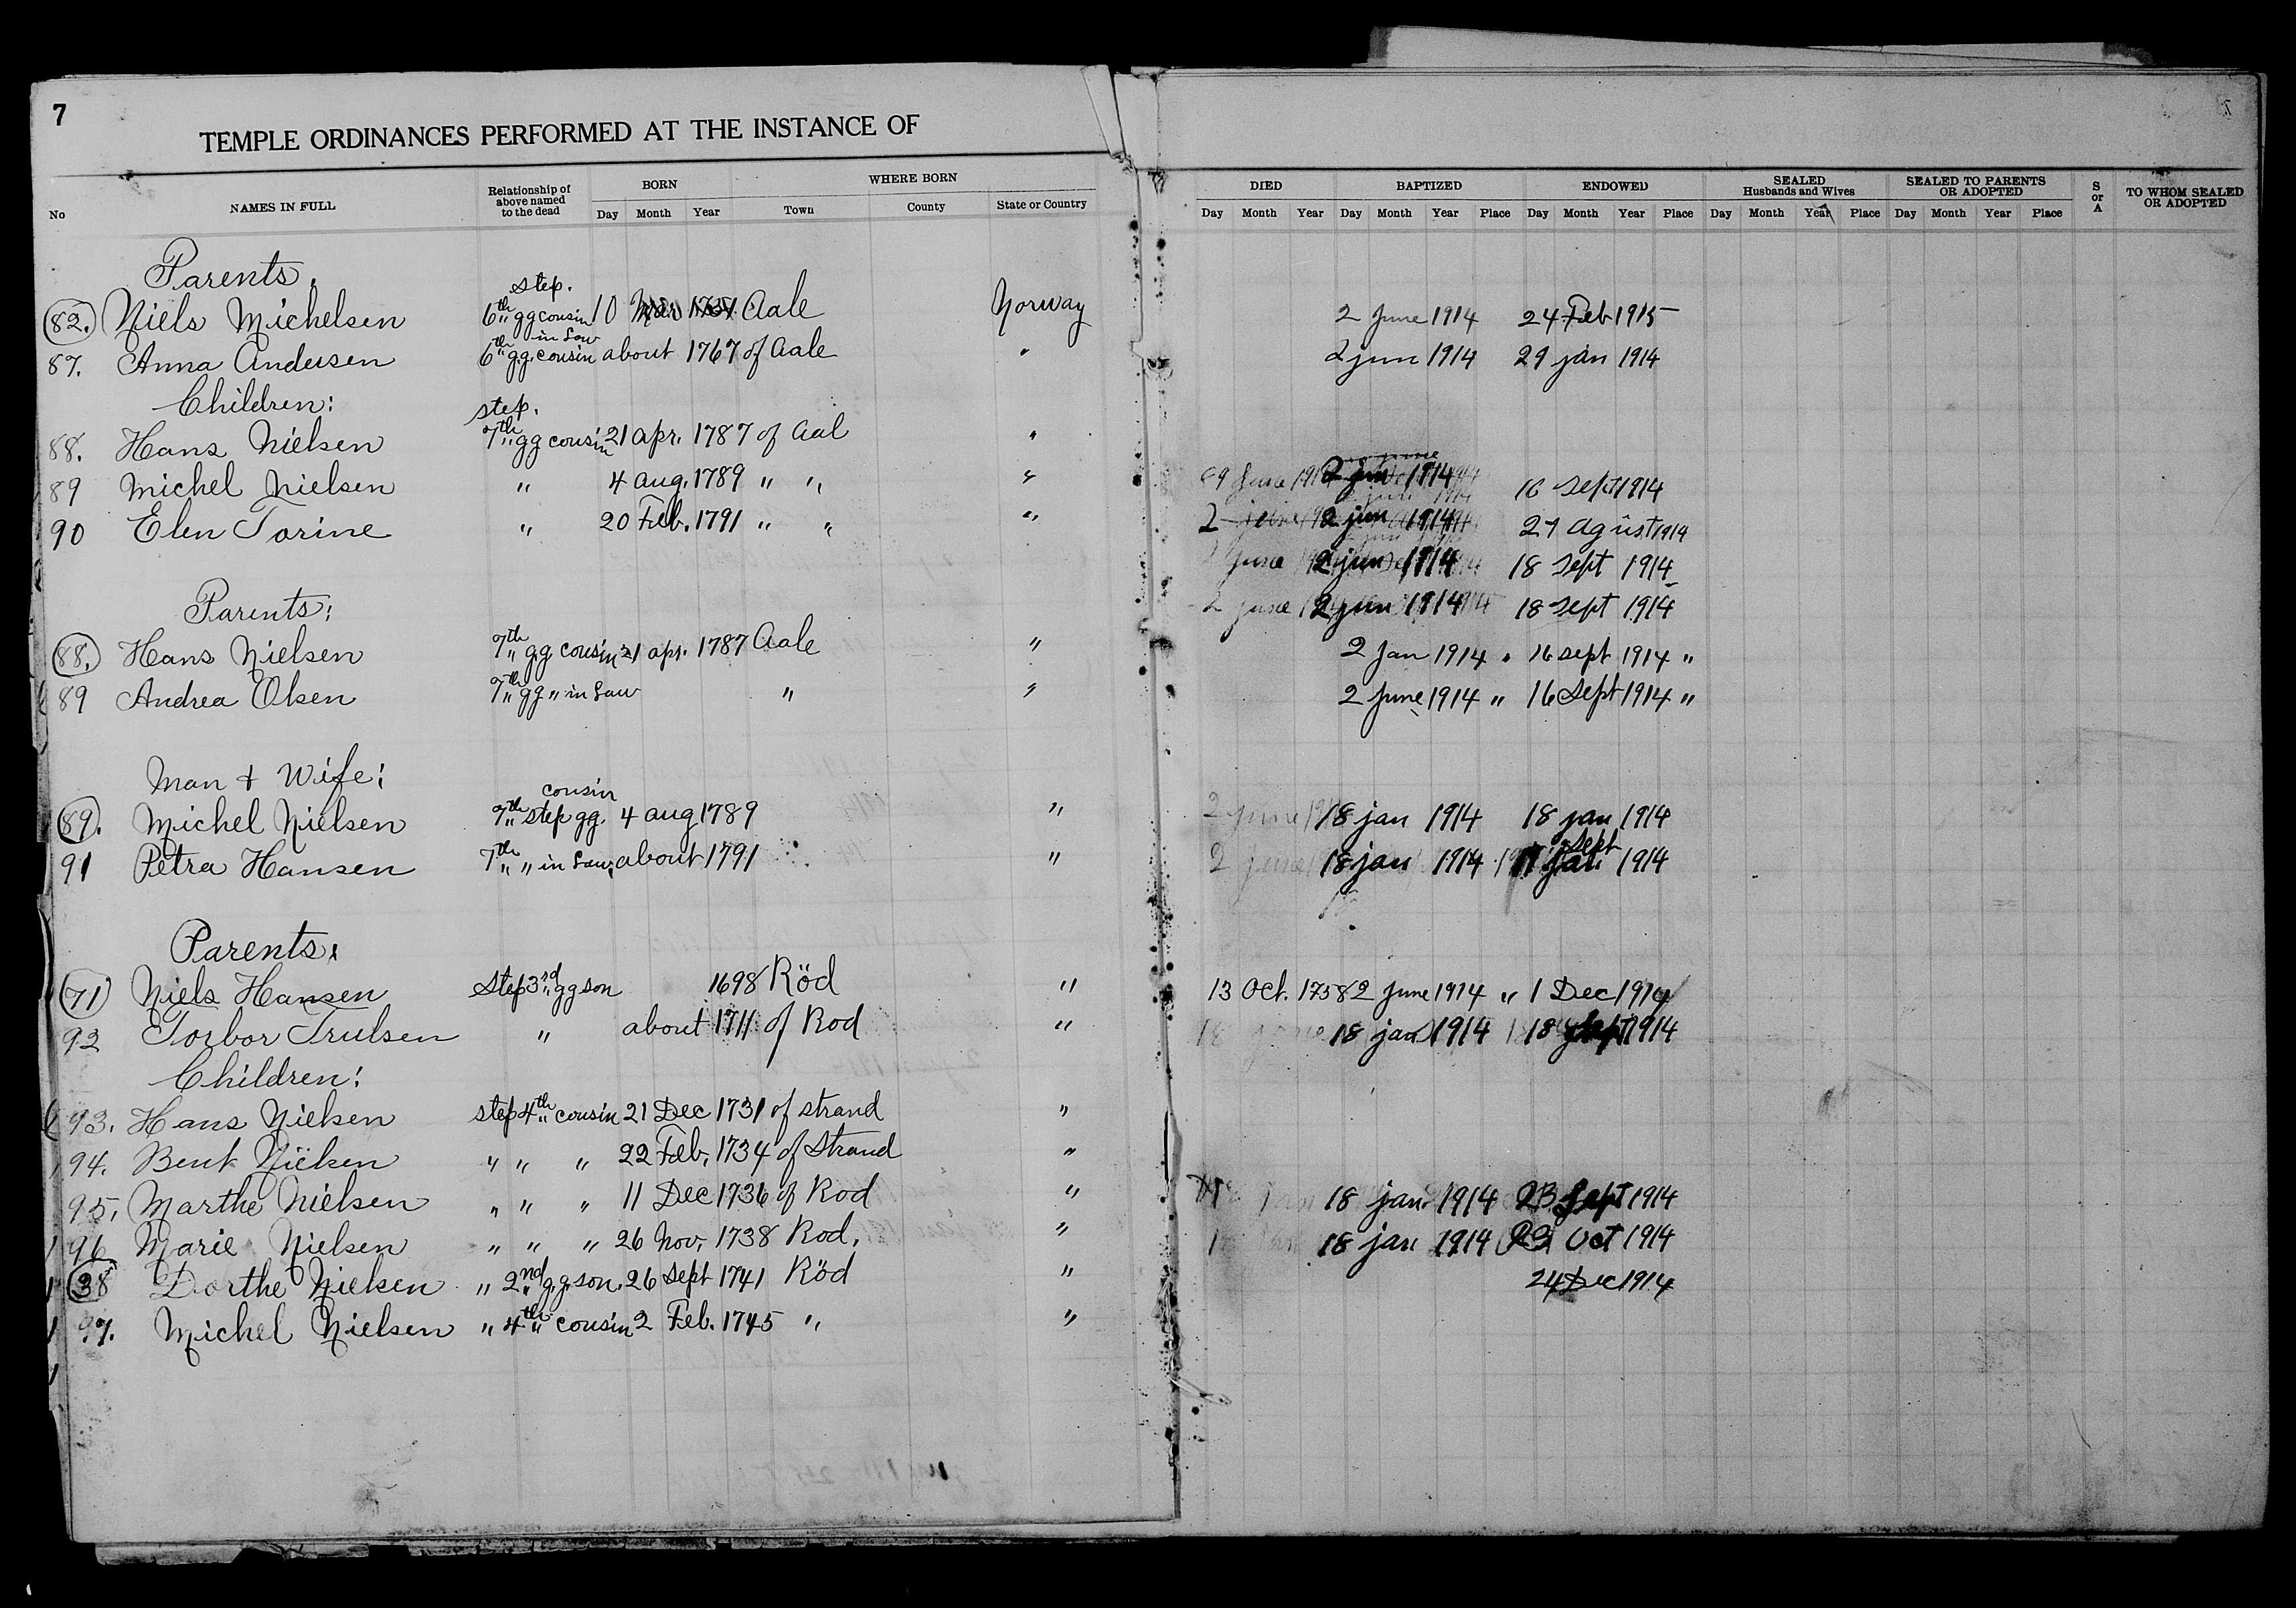 7
TEMPLE ORDINANCES PERFORMED AT THE INSTANCE OF
No NAMES IN FULL Relationship of above named to the dead BORN Day Month Year WHERE BORN Town County State or Country DIED Day Month Year BAPTIZED Day Month Year Place ENDOWED Day Month Year Place SEALED Husbands and Wives Day Month Year Place SEALED TO PARENTS OR ADOPTED Day Month Year Place S or A TO WHOM SEALED OR ADOPTED
Parents.
82. Niels Michelsen step. 6th gg cousin in Law 10 Aale Norway 2 June 1914 24 Feb 1915
87. Anna Andersen 6th g.g. cousin about 1767 of Aale " 2 jun 1914 29 jan 1914
Children:
88. Hans Nielsen step. 7th gg cousin 21 apr. 1787 of Aal "
89 Michel Nielsen " 4 aug. 1789 " " " 2 jun 1914 16 Sept 1914
90 Elen Torine " 20 Feb. 1791 " " " 2 jun 1914 27 agust 1914
2 jun 1914 18 Sept 1914
Parents: 2 jun 1914 18 sept 1914
88. Hans Nielsen 7th gg cousin 21 apr. 1787 Aale " 2 Jan 1914 " 16 sept 1914 "
89 Andrea Olsen 7th gg " in Law " " 2 June 1914 " 16 Sept 1914 "
Man + Wife:
89. Michel Nielsen 7th step gg. cousin 4 aug 1789 " 18 jan 1914 18 jan 1914
91 Petra Hansen 7th " " in Law about 1791 " 18 jan 1914 Sept 1914
Parents:
71 Niels Hansen Step 3rd gg son 1698 Röd " 13 Oct. 1758 2 June 1914 " 1 Dec 1914
92 Torbor Trulsen " about 1711 of Rod " 18 jan 1914 18 Sept 1914
Children:
93. Hans Nielsen step 4th cousin 21 Dec 1731 of strand "
94. Bent Nielsen " " " 22 Feb. 1734 of Strand "
95. Marthe Nielsen " " " 11 Dec 1736 of Rod " 18 jan 1914 23 Sept 1914
96 Marie Nielsen " " " 26 Nov. 1738 Rod. " 18 jan 1914 Oct 1914
38 Dorthe Nielsen " 2nd g.g. son. 26 Sept 1741 Röd " 24 Dec 1914
97. Michel Nielsen " 4th cousin 2 Feb. 1745 " "